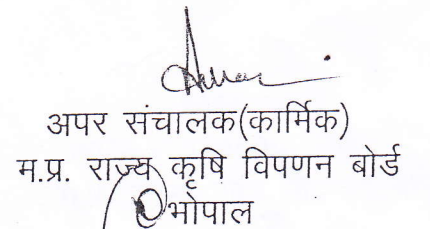 अपर संचालक(कार्मिक)
म.प्र. राज्य कृषि विपणन बोर्ड
भोपाल